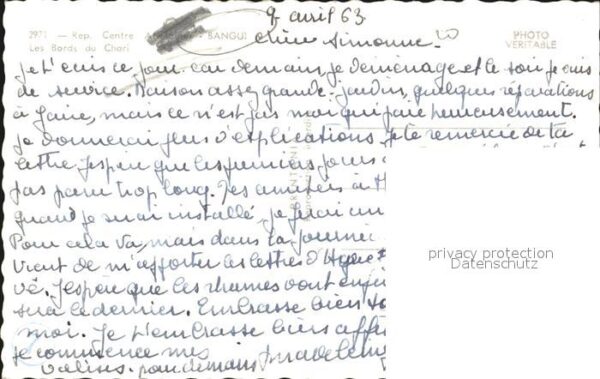 9 avril 63
2971 - Rep. Centre BANGUI
Les Bords du Chari
PHOTO
VERITABLE
Chère Simonne.
Je t'écris ce jour car demain je déménage et le soir je suis
de service. Maison assez grande. jardin, quelques réparations
à faire, mais ce n'est pas moi qui paie heureusement.
Je donnerai plus d'explications. Je te remercie de ta
lettre J'espère que les premiers jours
pas paru trop long. Mes amitiés à H
quand je serai installé je ferai un
Pour cela va, mais dans la journée
Vient de m'apporter les lettres d'
J'espère que les rhumes vont
sera le dernier. Embrasse bien
moi. Je t'embrasse bien
je commence mes
valises. pour demain
privacy protection
Datenschutz